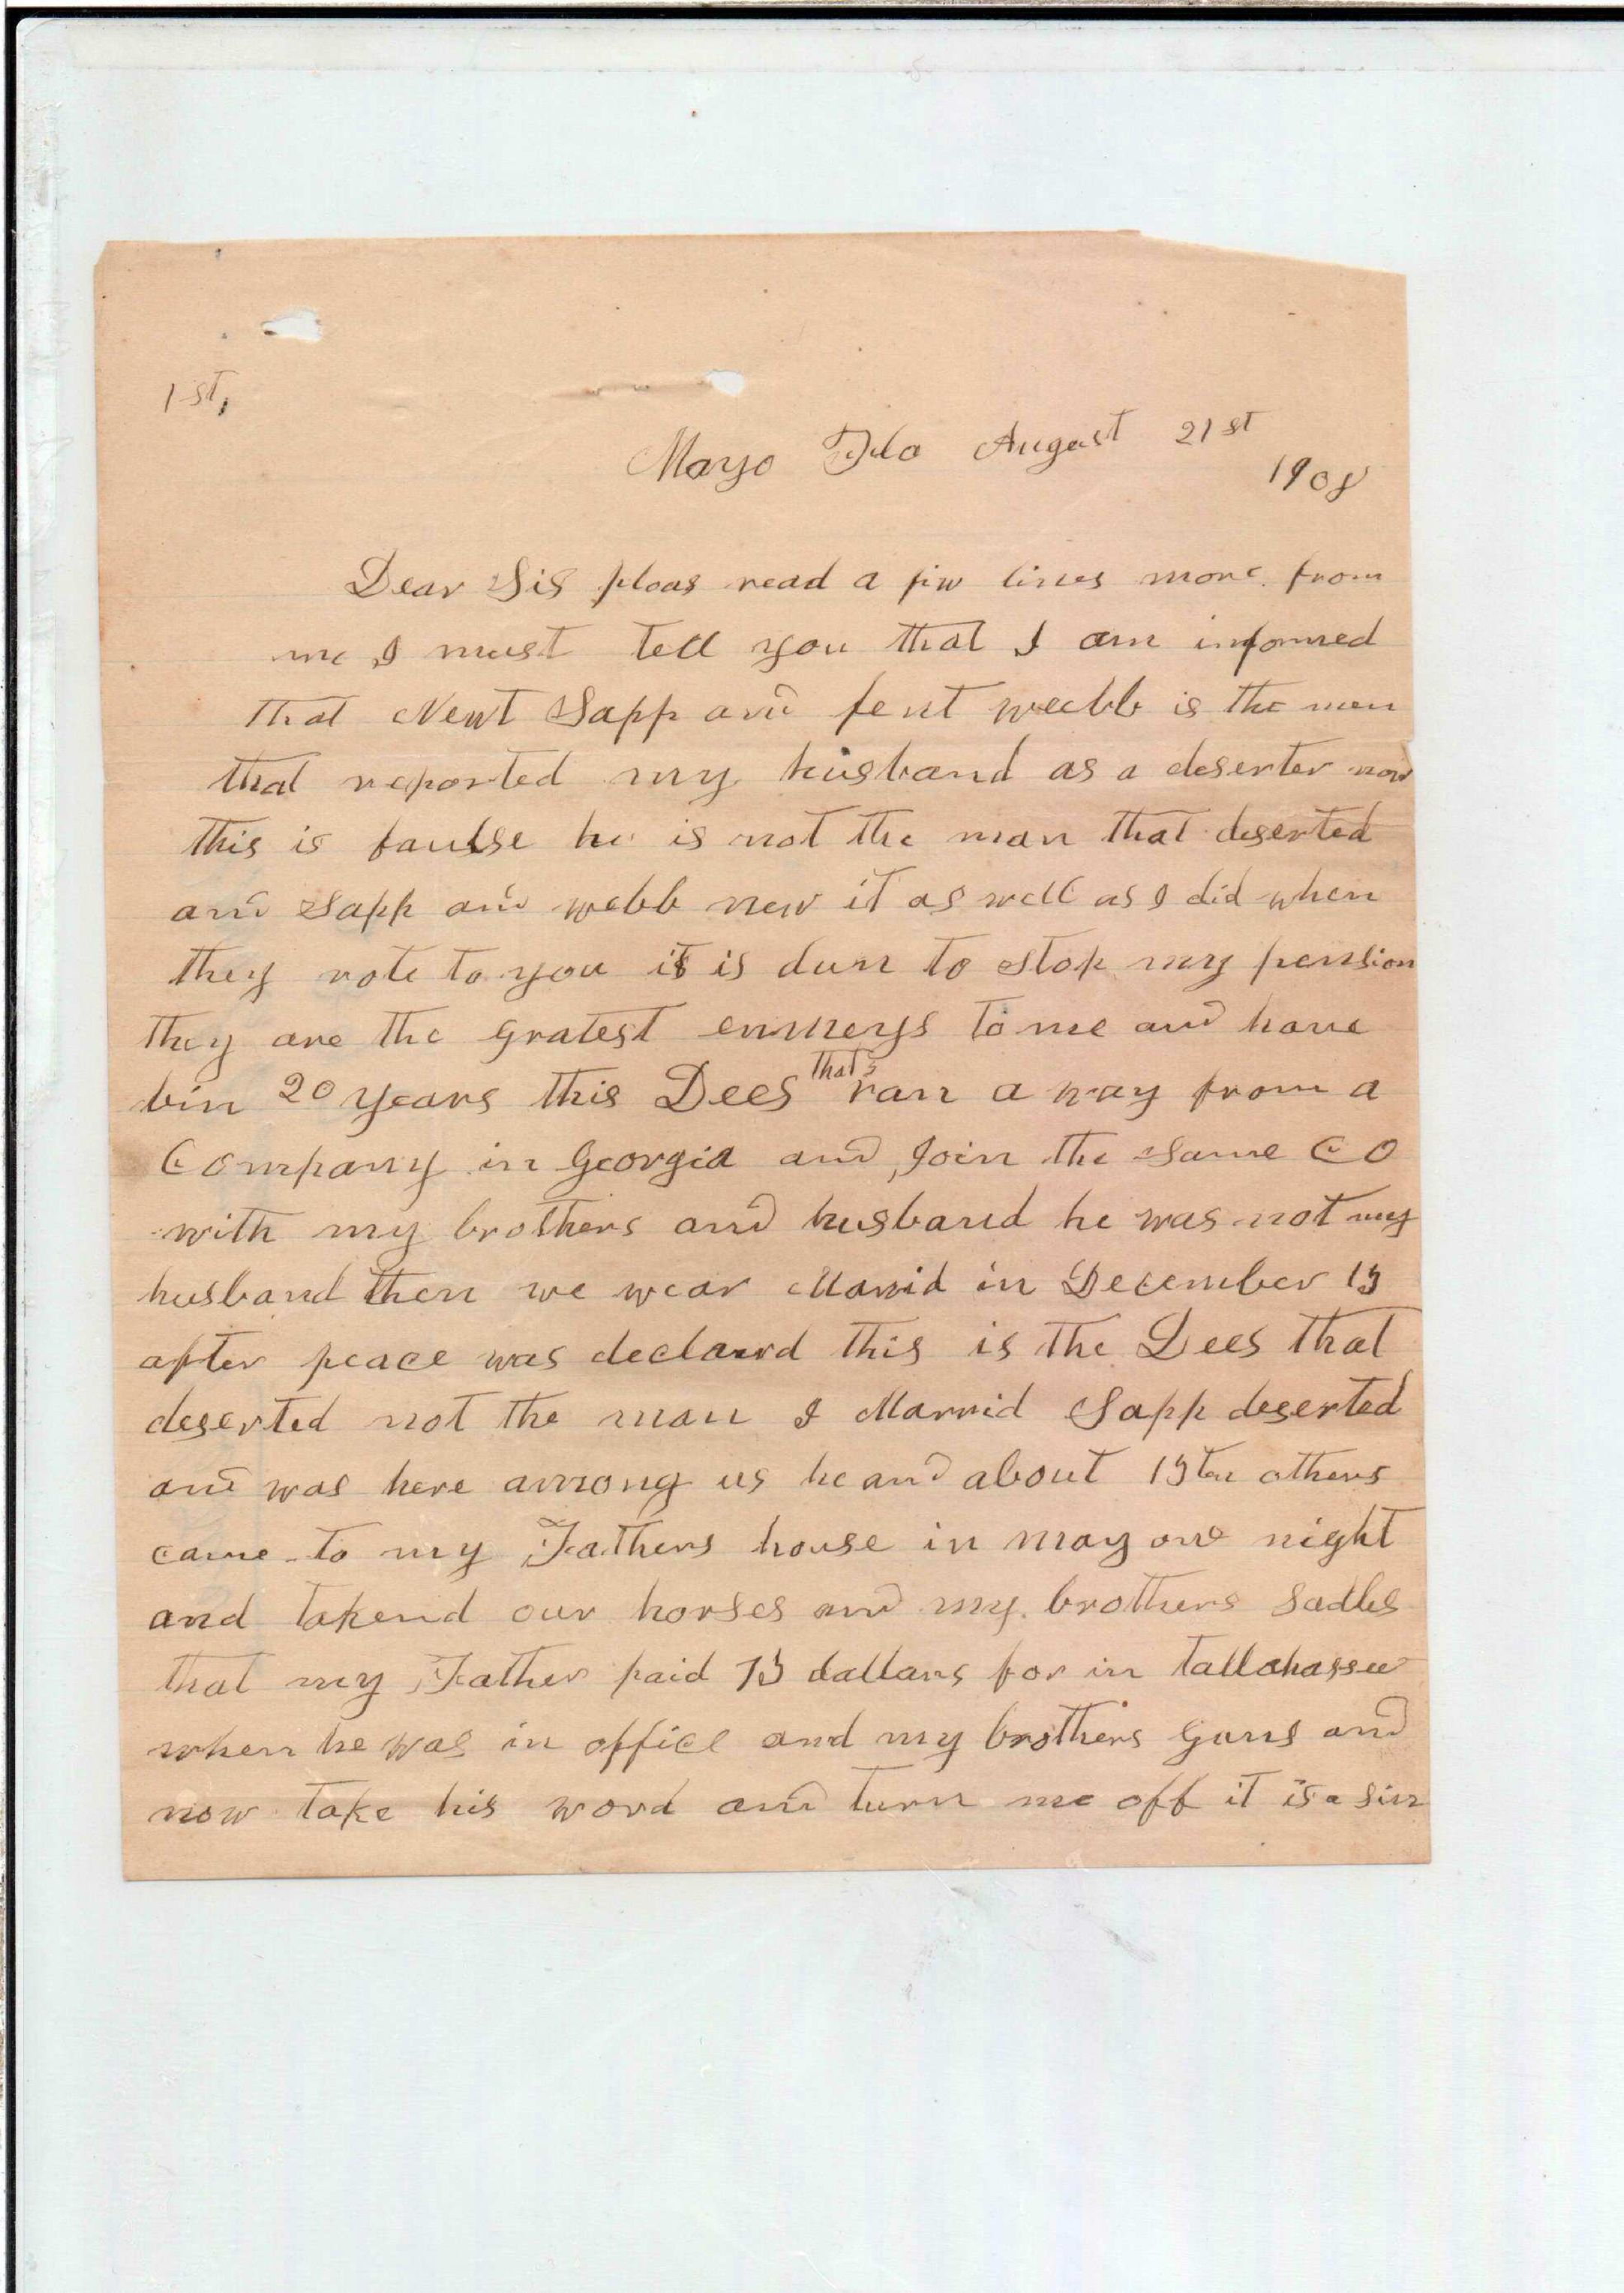 1st,
Mayo Fla August 21st
1908
Dear Sis pleas read a fiw lines more from
me I must tell you that I am informed
that Newt Sapp and fent weebb is the men
that reported my husband as a deserter now
this is faulse he is not the man that deserted
and Sapp and webb new it as well as I did when
they rote to you it is dun to stop my pension
they are the gratest enmeys to me and have
bin 20 years this Dees that's ran a way from a
Company in Georgia and Join the same CO
with my brothers and husband he was not my
husband then we wear Marrid in December 15
after peace was declard this is the Dees that
deserted not the man I Marrid Sapp deserted
and was here among us he and about 15 ten others
came to my Fathers house in may one night
and takend our horses and my brothers Sadles
that my Father paid 75 dallars for in tallahassee
when he was in office and my brothers guns and
now take his word and turn me off it is a sin